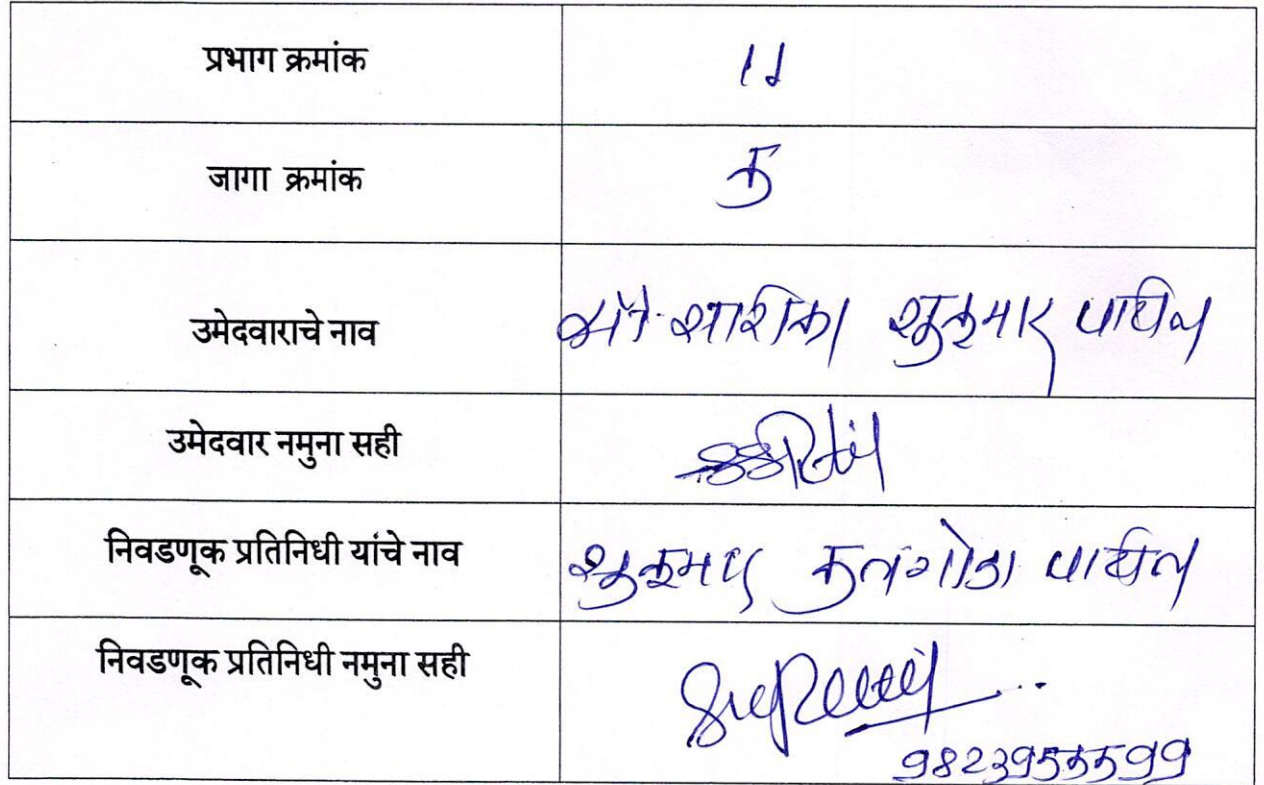 प्रभाग क्रमांक 11
जागा क्रमांक क
उमेदवाराचे नाव सौ. सारिका सुकुमार पाटील
उमेदवार नमुना सही
निवडणूक प्रतिनिधी यांचे नाव सुकुमार पाटील
निवडणूक प्रतिनिधी नमुना सही
9823955599